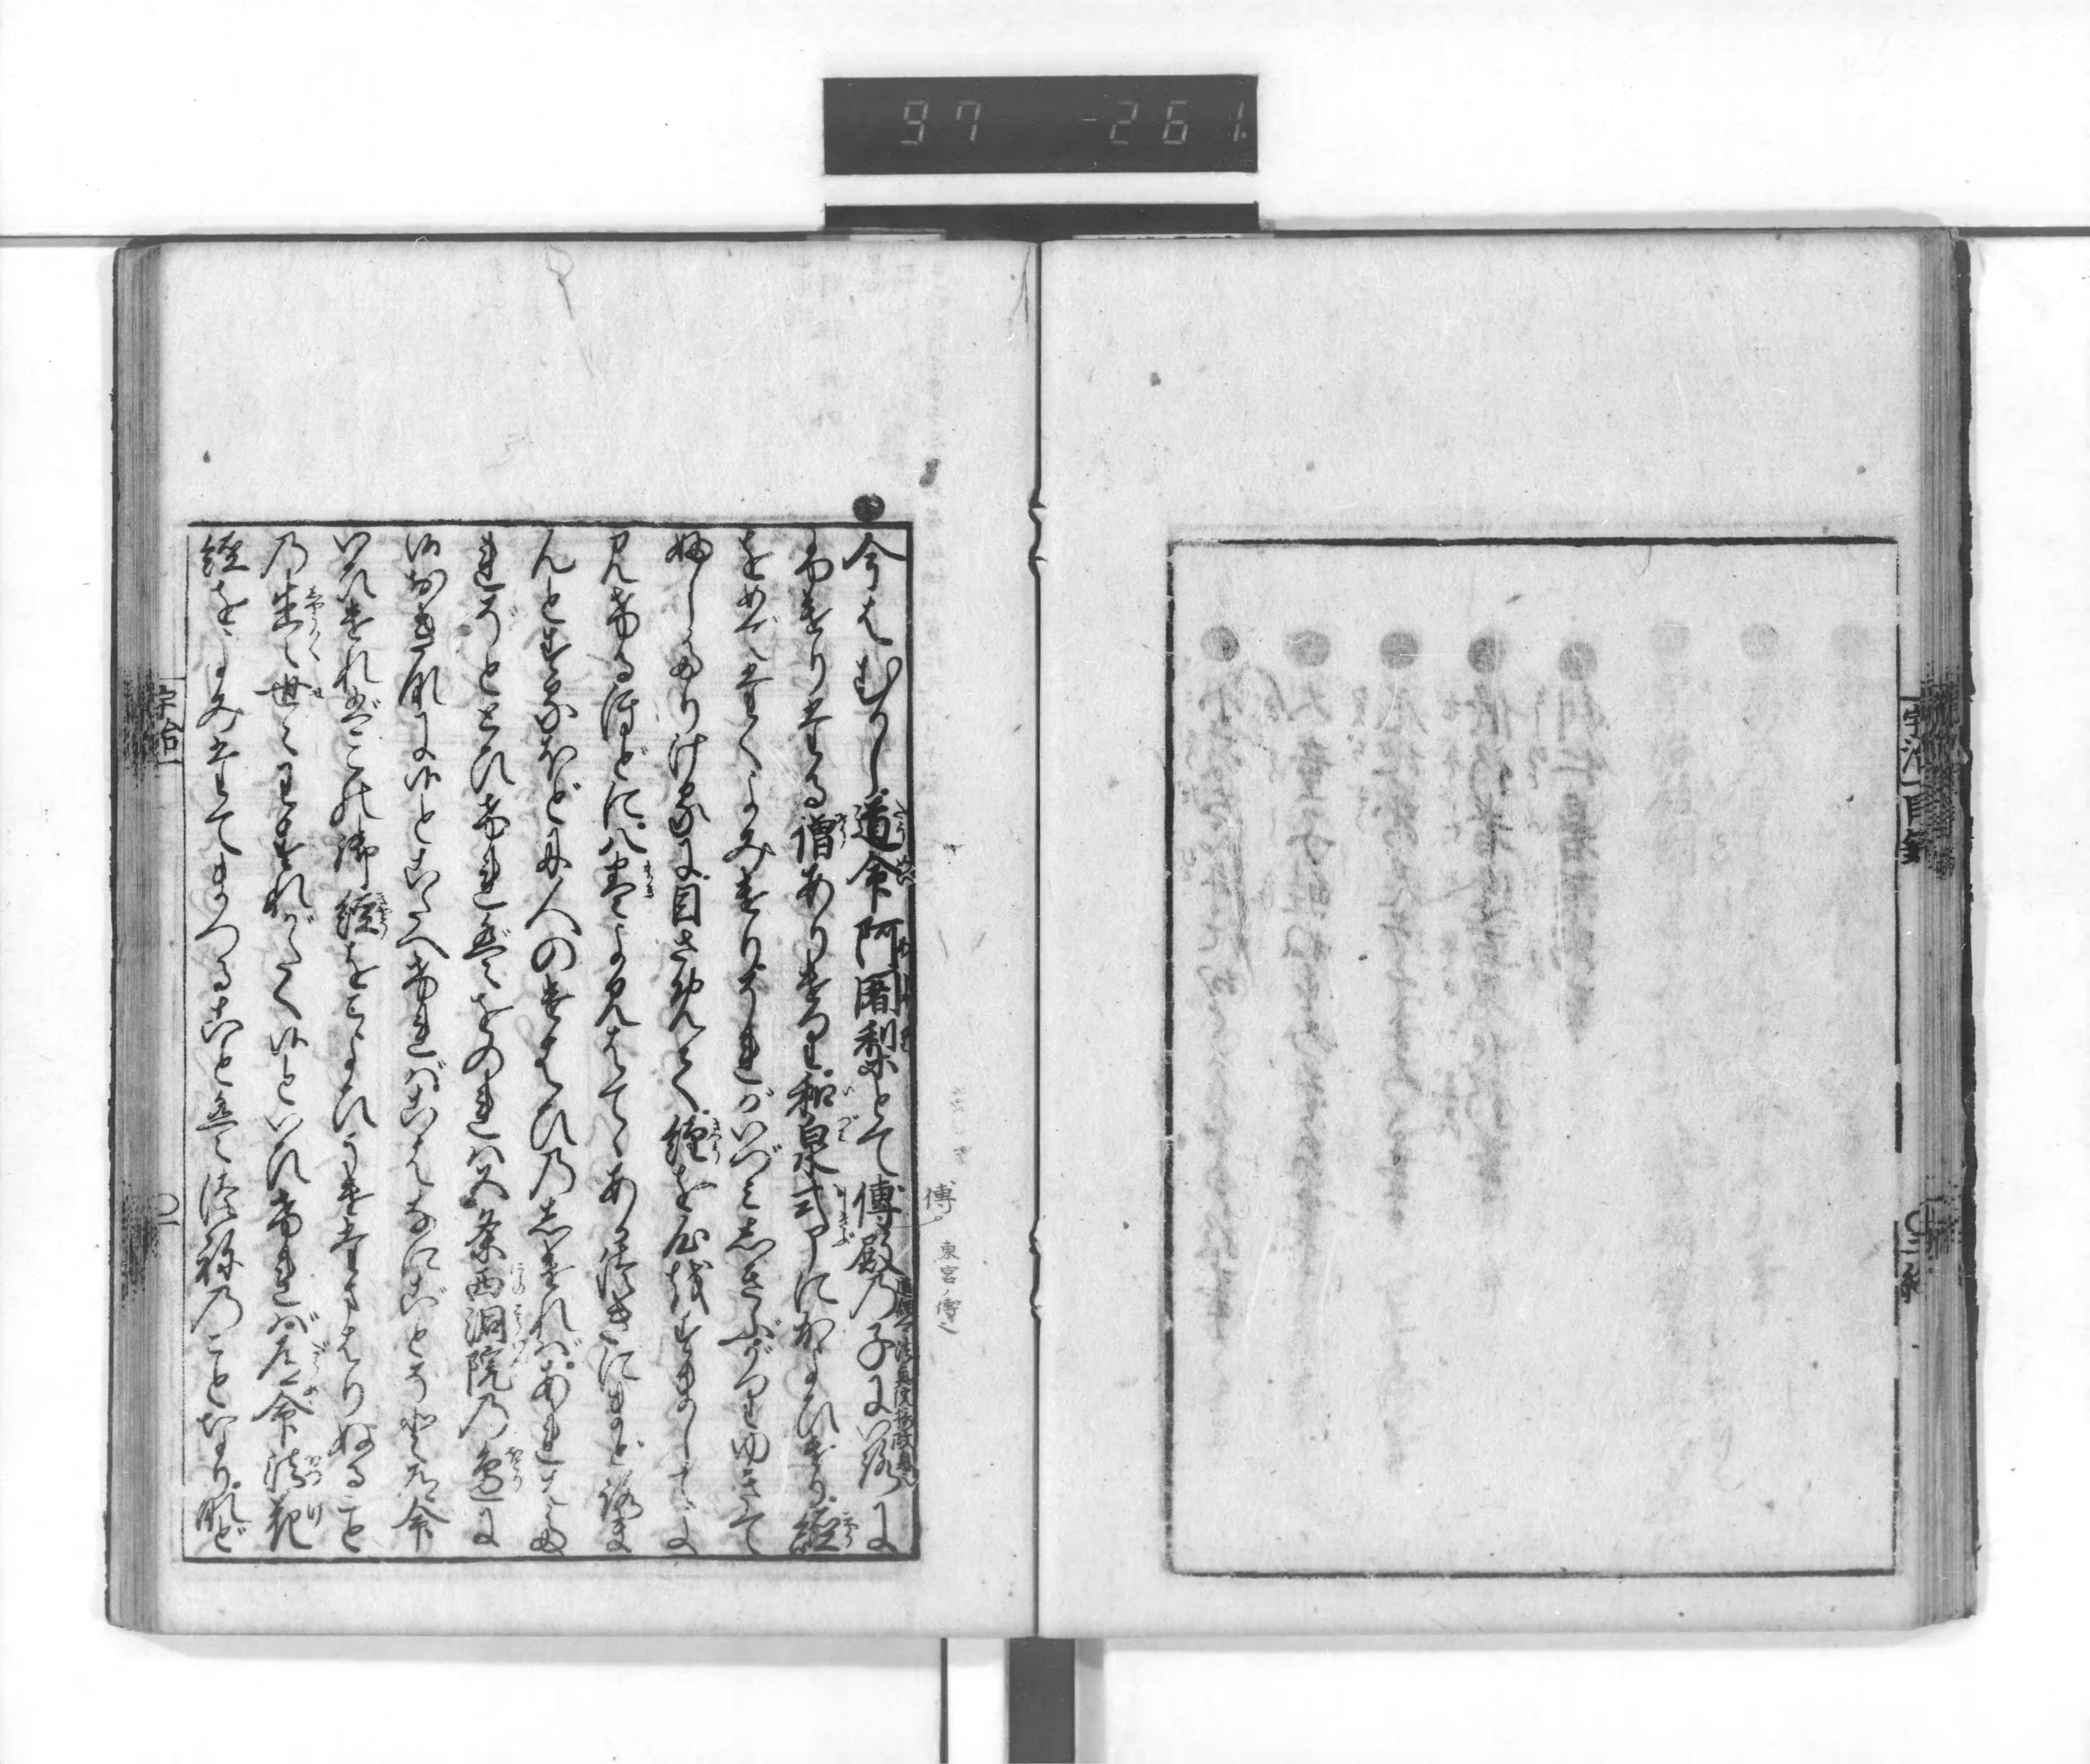 97 -261.
宇治一目録
〇二終
傳 東宮ノ傳也
今はむかし道命阿闍梨とて傅殿乃子に色に
ふけりたる僧ありけり和泉式部にかよひけり経
をめでたくよみけりそれがいづみしきぶがりゆきて
ふしたりけるに目さめて経を心をすましてよ
みける程に八巻よみはてゝあか月にまどろま
んとする程に人のけはひのしければあれはた
れぞととひければをのれは五条西洞院の辺に
候おきなに候とこたへければこはなに事ぞと道命
いひければこの御経をこよひうけたまはりぬること
の生々世々わすれがたく候といひければ道命法花
経をよみたてまつることはつねのことなりなど
宇治一
〇一